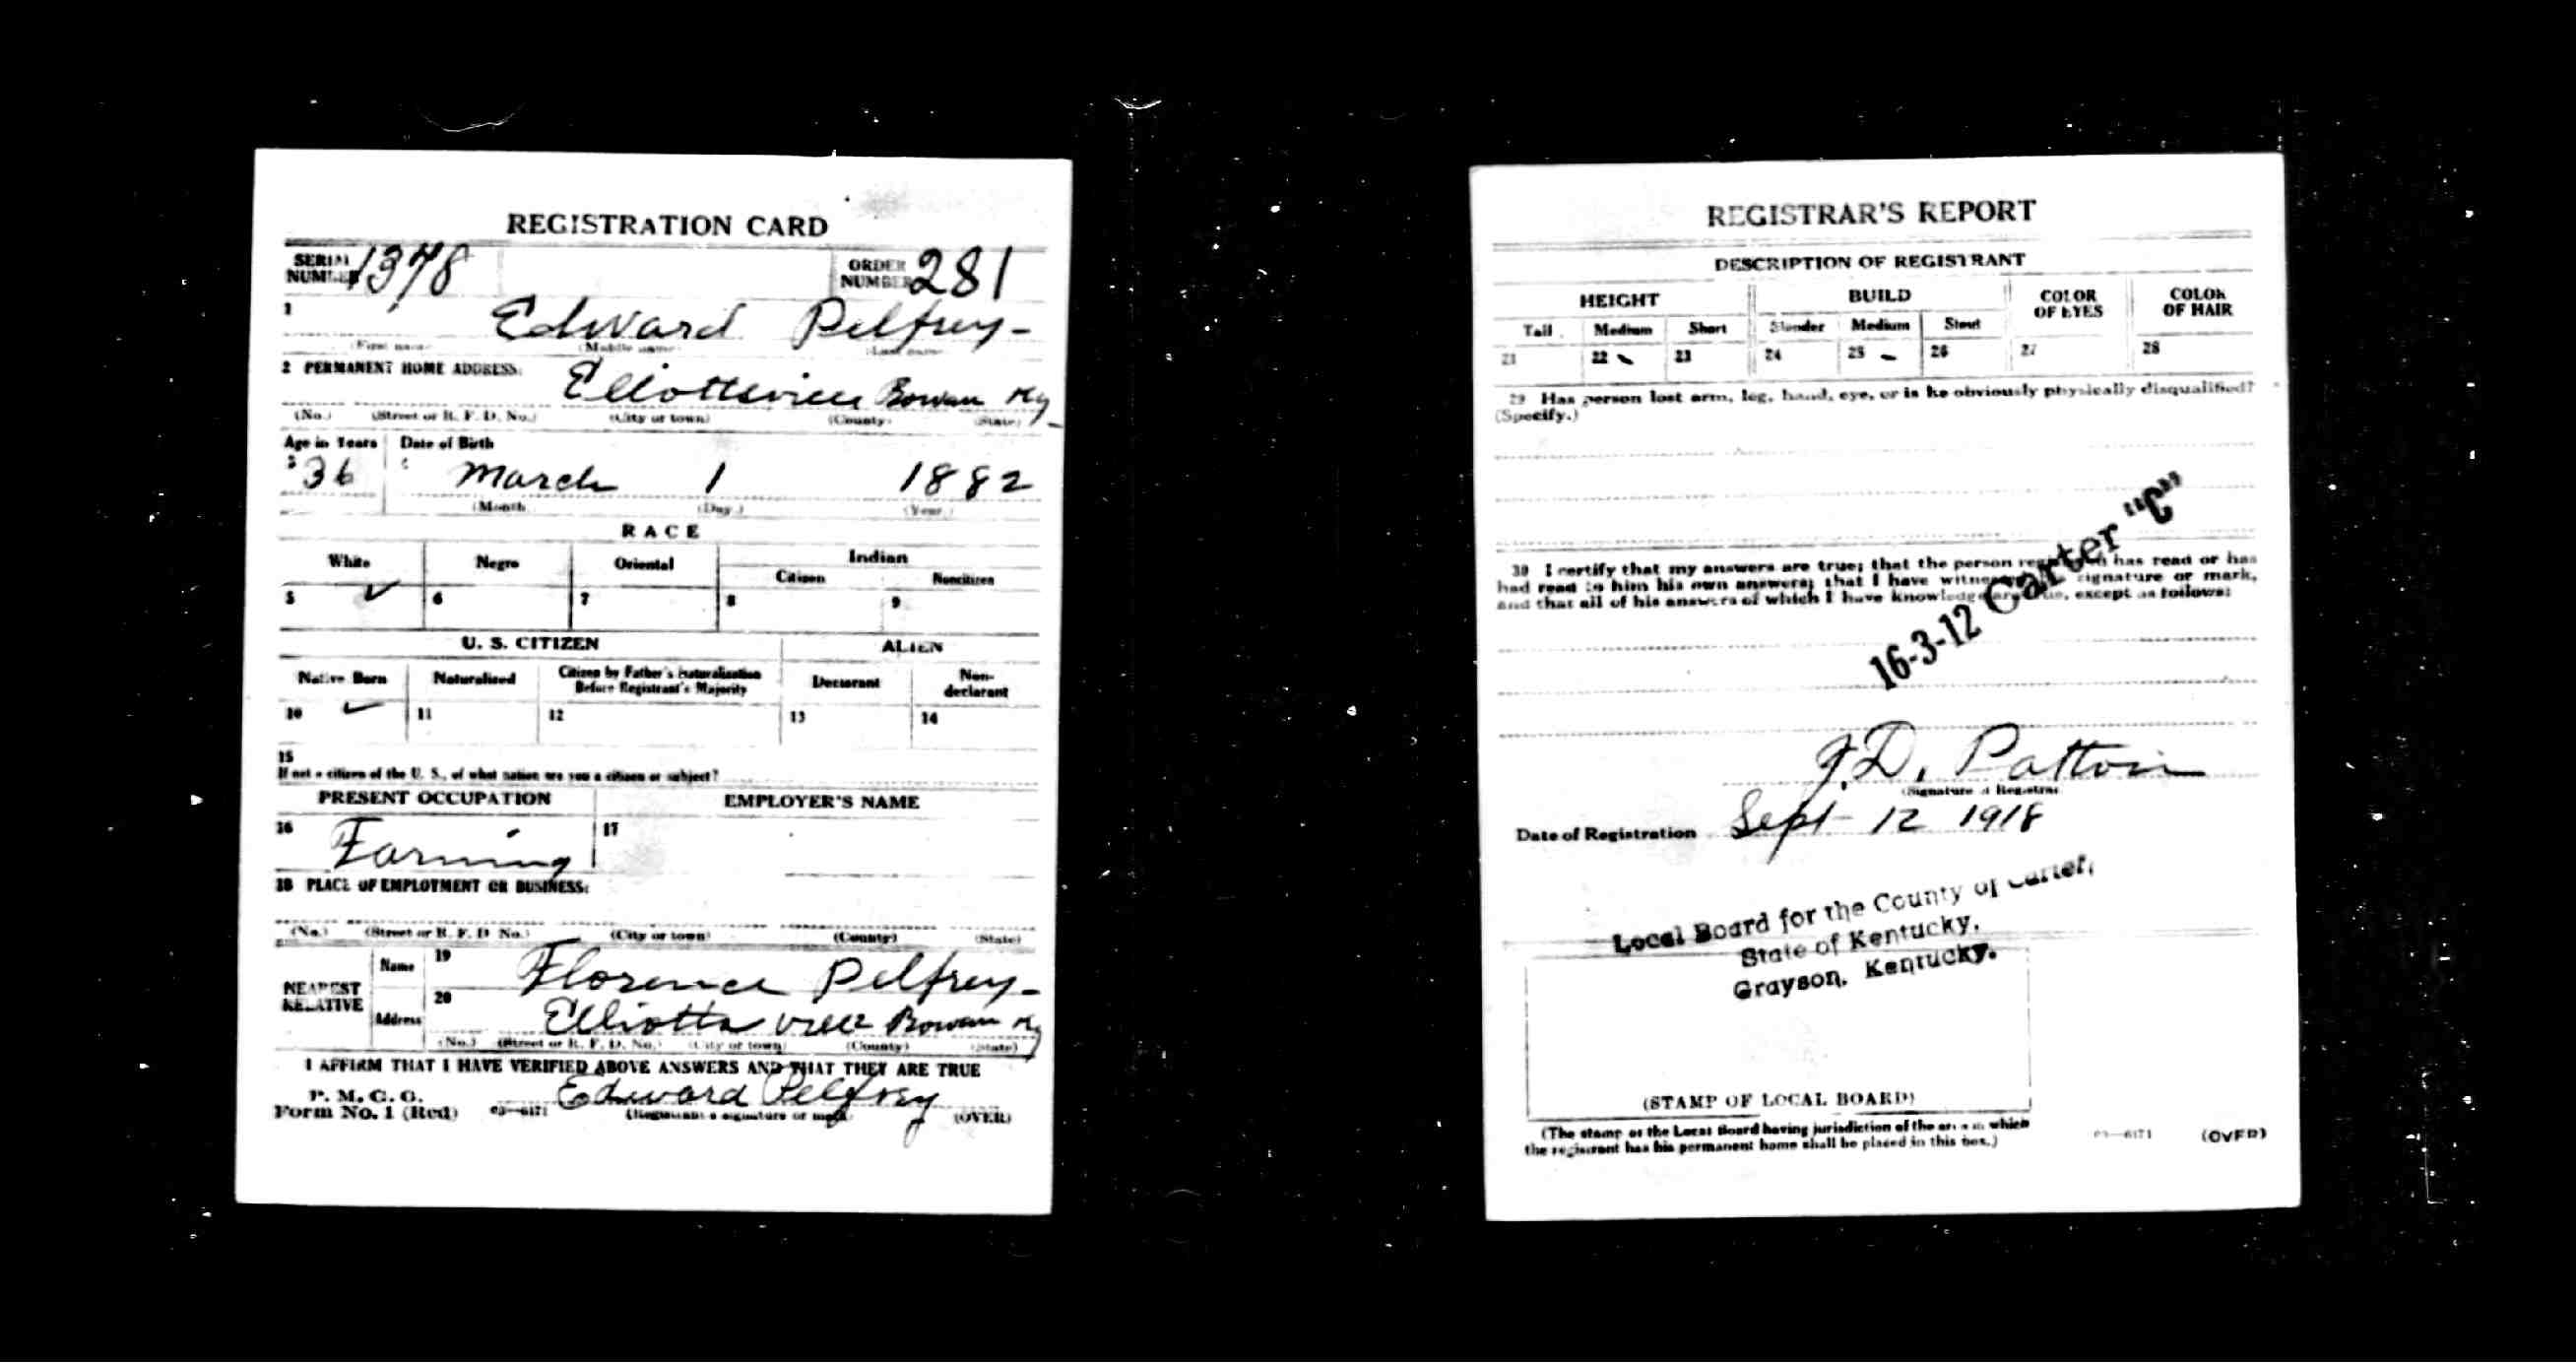 REGISTRATION CARD
SERIAL NUMBER 1378 ORDER NUMBER 281
1 Edward Pelfrey-
(First name) (Middle name) (Last name)
2 PERMANENT HOME ADDRESS: Elliottsville Rowan Ky
(No.) (Street or R. F. D. No.) (City or town) (County) (State)
Age in Years Date of Birth
3 36 4 March 1 1882
(Month) (Day) (Year)
RACE
White Negro Oriental Indian
Citizen Noncitizen
5 ✓ 6 7 8 9
U. S. CITIZEN ALIEN
Native Born Naturalized Citizen by Father's Naturalization Before Registrant's Majority Declarant Non-declarant
10 ✓ 11 12 13 14
15
If not a citizen of the U. S., of what nation are you a citizen or subject?
PRESENT OCCUPATION EMPLOYER'S NAME
16 Farming 17
18 PLACE OF EMPLOYMENT OR BUSINESS:
(No.) (Street or R. F. D. No.) (City or town) (County) (State)
NEAREST RELATIVE Name 19 Florence Pelfrey-
Address 20 Elliottsville Rowan Ky
(No.) (Street or R. F. D. No.) (City or town) (County) (State)
I AFFIRM THAT I HAVE VERIFIED ABOVE ANSWERS AND THAT THEY ARE TRUE
P. M. G. O.
Form No. 1 (Red) 03—6171 Edward Pelfrey
(Registrant's signature or mark) (OVER)
REGISTRAR'S REPORT
DESCRIPTION OF REGISTRANT
HEIGHT BUILD COLOR OF EYES COLOR OF HAIR
Tall Medium Short Slender Medium Stout
21 22 23 24 25 26 27 28
29 Has person lost arm, leg, hand, eye, or is he obviously physically disqualified?
(Specify.)
30 I certify that my answers are true; that the person registered has read or has
had read to him his own answers; that I have witnessed his signature or mark,
and that all of his answers of which I have knowledge are true, except as follows:
16-3-12 Carter "C"
J.D. Patton
(Signature of Registrar)
Date of Registration Sept 12 1918
Local Board for the County of Carter,
State of Kentucky,
Grayson, Kentucky.
(STAMP OF LOCAL BOARD)
(The stamp of the Local Board having jurisdiction of the area in which
the registrant has his permanent home shall be placed in this box.)
03—6171 (OVER)